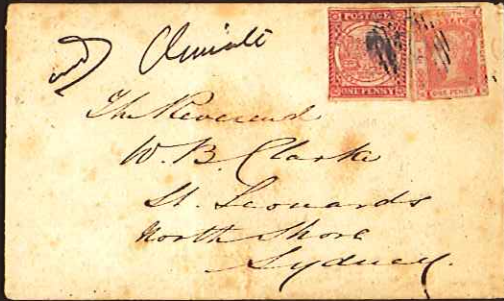 POSTAGE
ONE PENNY
ONE PENNY
The Reverend
W. B. Clarke
St. Leonards
North Shore
Sydney